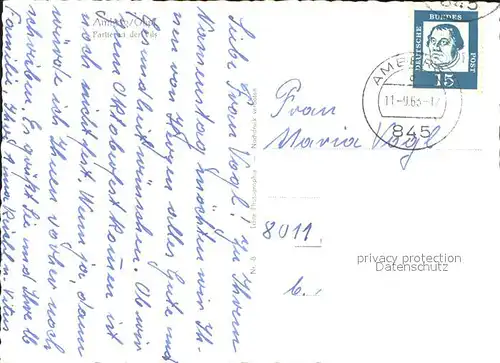 Amberg/Opf.
Partie an der Vils
Liebe Frau Vogl! Zu Ihrem
Namenstag möchten wir Ih-
nen von Herzen alles Gute und
Gesundheit wünschen. Ob wir
zum Oktoberfest kommen ist
noch nicht fest. Wenn ja, dann
würde ich Ihnen vorher noch
schreiben. Es grüßt Sie und Ihre lb
Familie
Nr. 6 Echte Photographie — Nachdruck verboten
845
DEUTSCHE BUNDES POST
15
AMBERG
11-9.63-17
845
Frau
Maria Vogl
8011
b.
privacy protection
Datenschutz